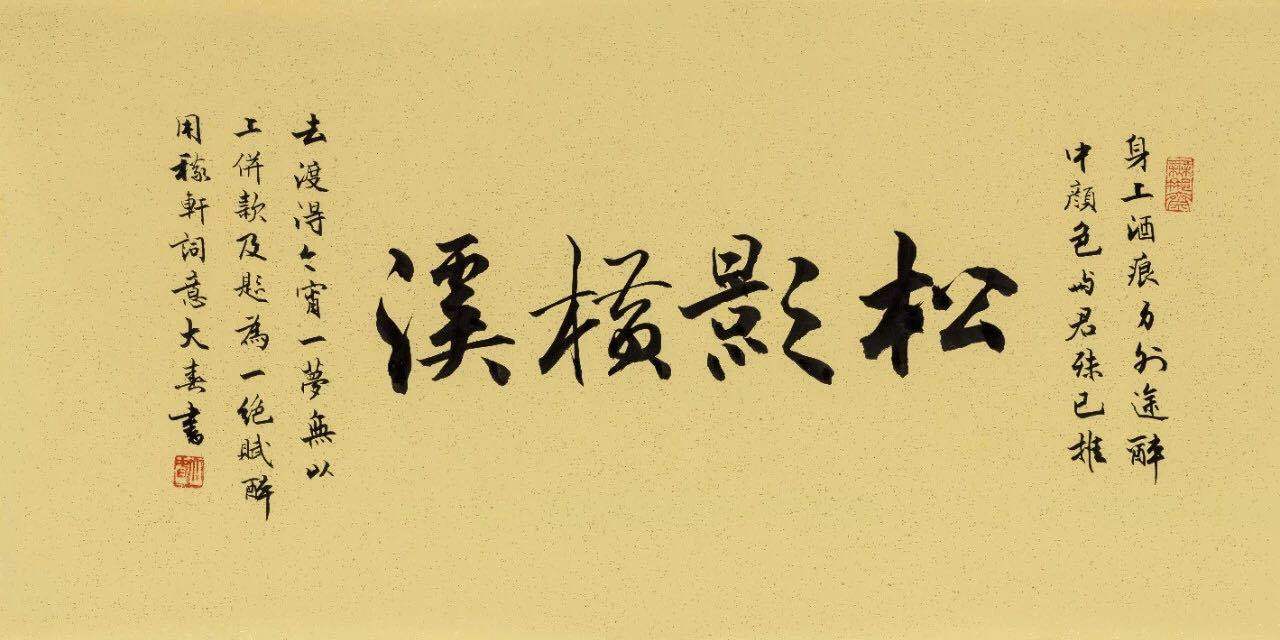 身上酒痕方外途醉
中顏色与君殊已推
松影橫溪
去渡得今宵一夢無以
上併款及題為一絕賦醉
用稼軒詞意大春書